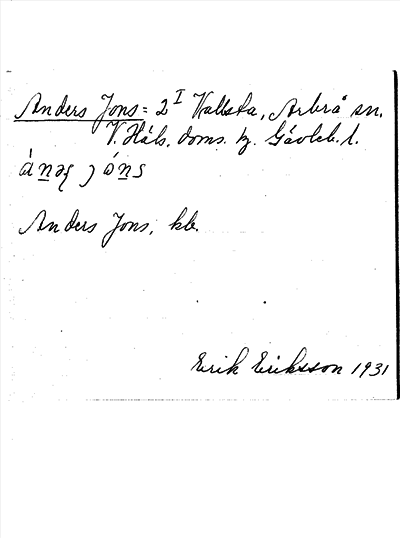 Anders Jons = 2^I Vallsta, Arbrå sn.
V. Häls. doms. hg. Gävleb. l.
Anders Jons, kb.
Erik Eriksson 1931